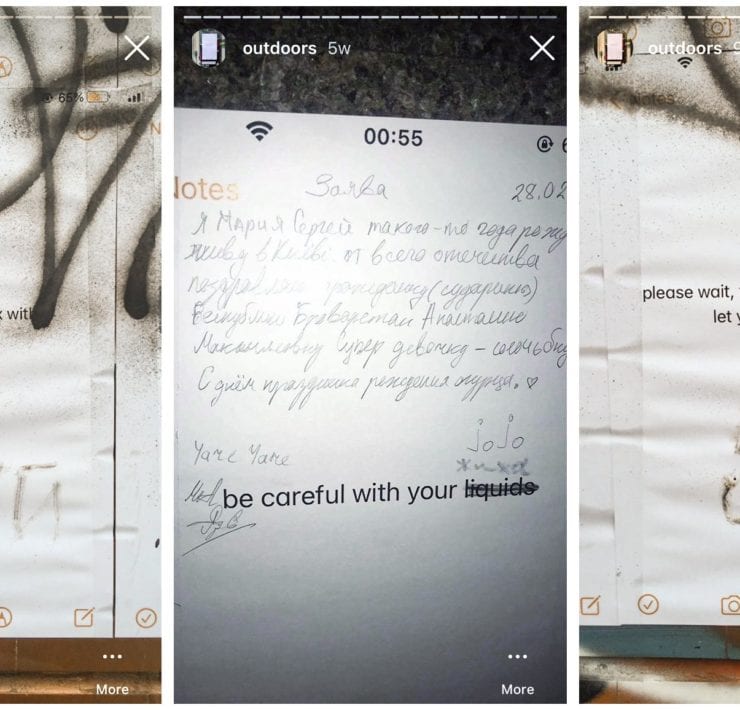 65%
N
x with
ТИ
More
outdoors 5w
00:55
Notes
Заява
28.02
Я Мария Сергей такого-то года рожд
живу в Києві от всего отечества
поздравляю гражданку (сударыню)
Республики Броварстан Анастасию
Максимовну супер девочку –
С днём праздника рождения жунца. ♡
Яare Яare
jojo
be careful with your liquids
More
outdoors
Notes
please wait,
let y